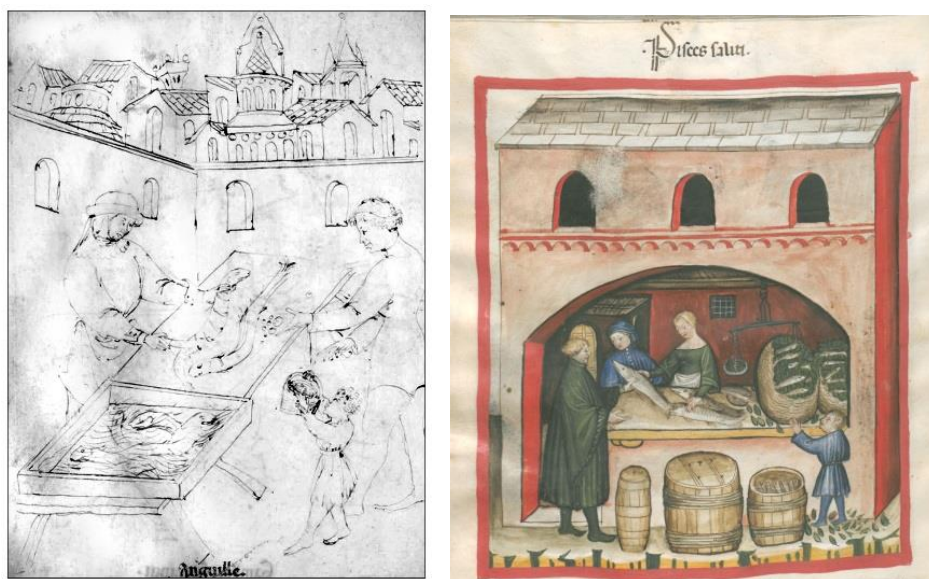 Anguille.
Pisces saliti.